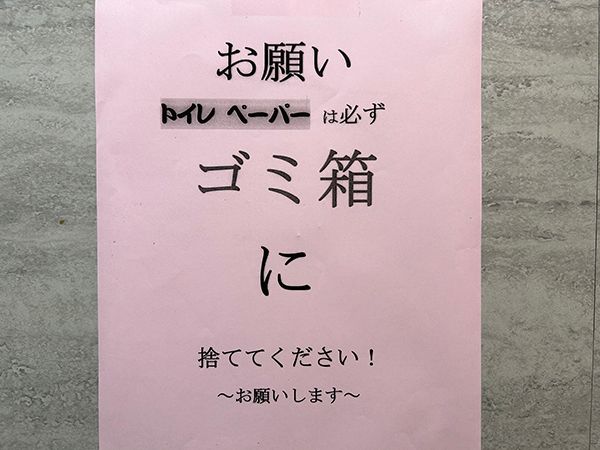 お願い
トイレ ペーパー は必ず
ゴミ箱
に
捨ててください！
～お願いします～